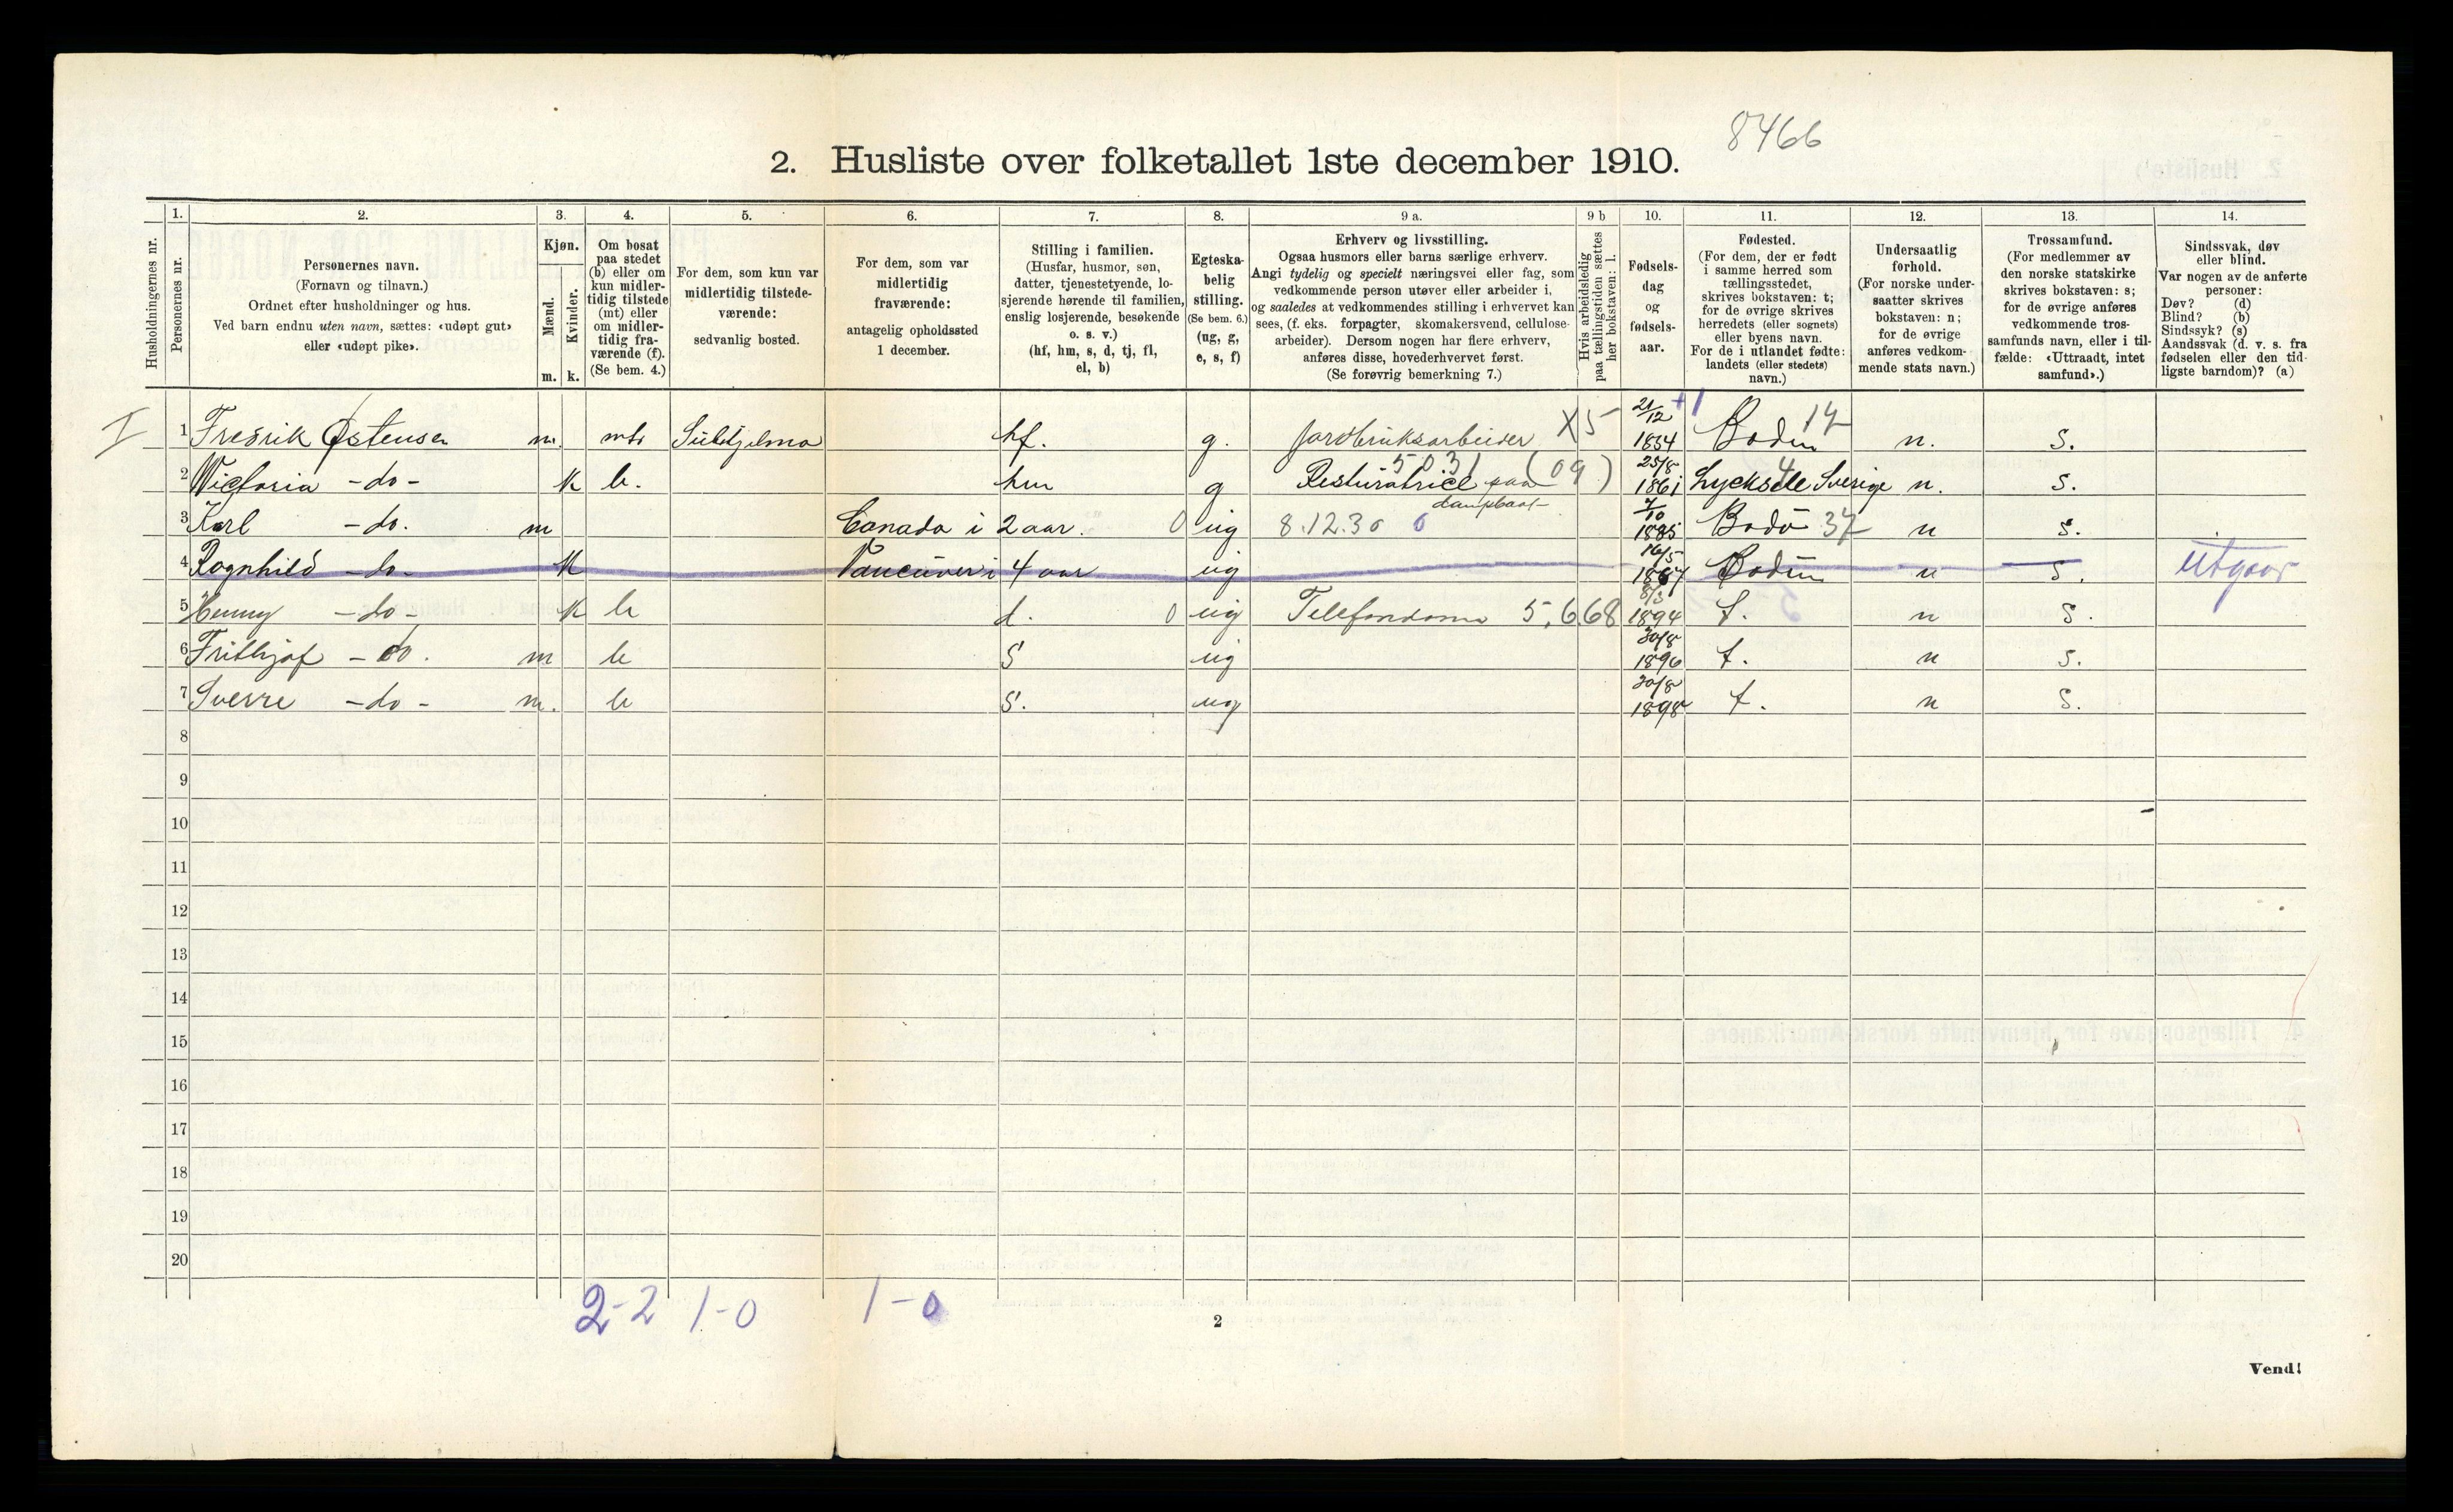 8466
2. Husliste over folketallet 1ste december 1910.
1. 2. 3. 4. 5. 6. 7. 8. 9 a. 9 b 10. 11. 12. 13. 14.
Husholdningernes nr.
Personernes nr.
Personernes navn.
(Fornavn og tilnavn.)
Ordnet efter husholdninger og hus.
Ved barn endnu uten navn, sættes: «udøpt gut»
eller «udøpt pike».
Kjøn.
Mænd.
Kvinder.
m. k.
Om bosat
paa stedet
(b) eller om
kun midler-
tidig tilstede
(mt) eller
om midler-
tidig fra-
værende (f).
(Se bem. 4.)
For dem, som kun var
midlertidig tilstede-
værende:
sedvanlig bosted.
For dem, som var
midlertidig
fraværende:
antagelig opholdssted
1 december.
Stilling i familien.
(Husfar, husmor, søn,
datter, tjenestetyende, lo-
sjerende hørende til familien,
enslig losjerende, besøkende
o. s. v.)
(hf, hm, s, d, tj, fl,
el, b)
Egteska-
belig
stilling.
(Se bem. 6.)
(ug, g,
e, s, f)
Erhverv og livsstilling.
Ogsaa husmors eller barns særlige erhverv.
Angi tydelig og specielt næringsvei eller fag, som
vedkommende person utøver eller arbeider i,
og saaledes at vedkommendes stilling i erhvervet kan
sees, (f. eks. forpagter, skomakersvend, cellulose-
arbeider). Dersom nogen har flere erhverv,
anføres disse, hovederhvervet først.
(Se forøvrig bemerkning 7.)
Hvis arbeidsledig
paa tællingstiden sættes
her bokstaven: l.
Fødsels-
dag
og
fødsels-
aar.
Fødested.
(For dem, der er født
i samme herred som
tællingsstedet,
skrives bokstaven: t;
for de øvrige skrives
herredets (eller sognets)
eller byens navn.
For de i utlandet fødte:
landets (eller stedets)
navn.)
Undersaatlig
forhold.
(For norske under-
saatter skrives
bokstaven: n;
for de øvrige
anføres vedkom-
mende stats navn.)
Trossamfund.
(For medlemmer av
den norske statskirke
skrives bokstaven: s;
for de øvrige anføres
vedkommende tros-
samfunds navn, eller i til-
fælde: «Uttraadt, intet
samfund».)
Sindssvak, døv
eller blind.
Var nogen av de anførte
personer:
Døv? (d)
Blind? (b)
Sindssyk? (s)
Aandssvak (d. v. s. fra
fødselen eller den tid-
ligste barndom)? (a)
I 1 Fredrik Østensen m. mt Sulitjelma hf. g. Jordbruksarbeider X5 21/12 1854 Bodin 14 n. s.
2 Victoria - do - k b. hm g Resturatrice paa dampbaat 5031 (09) 25/8 1861 Lycksele Sverige 4 n. s.
3 Karl - do. m Canada i 2 aar. 0 ug 8.12.30 0 7/10 1885 Bodø 37 n s.
4 Ragnhild - do - k Vancuver i 4 aar ug 16/5 1887 Bodin n s. utgaar
5 Henny - do - k b d. 0 ug Telefondame 5.668 8/3 1894 t. n s.
6 Frithjof - do. m b s ug 30/8 1896 t. n s.
7 Sverre - do - m. b s. ug 30/8 1898 t. n s.
8
9
10
11
12
13
14
15
16
17
18
19
20
2-2 1-0 1-0
2
Vend!